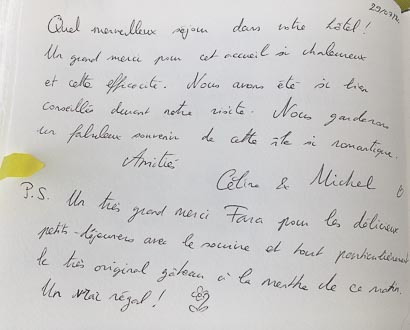 Quel merveilleux séjour dans votre hôtel !
Un grand merci pour cet accueil si chaleureux
et cette efficacité. Nous avons été si bien
conseillés durant notre visite. Nous garderons
un fabuleux souvenir de cette île si romantique.
Amitié
Céline & Michel
P.S. Un très grand merci Fara pour les délicieux
petits-déjeuners avec le sourire et tout particulièrement
le très original gâteau à la menthe de ce matin.
Un vrai régal !